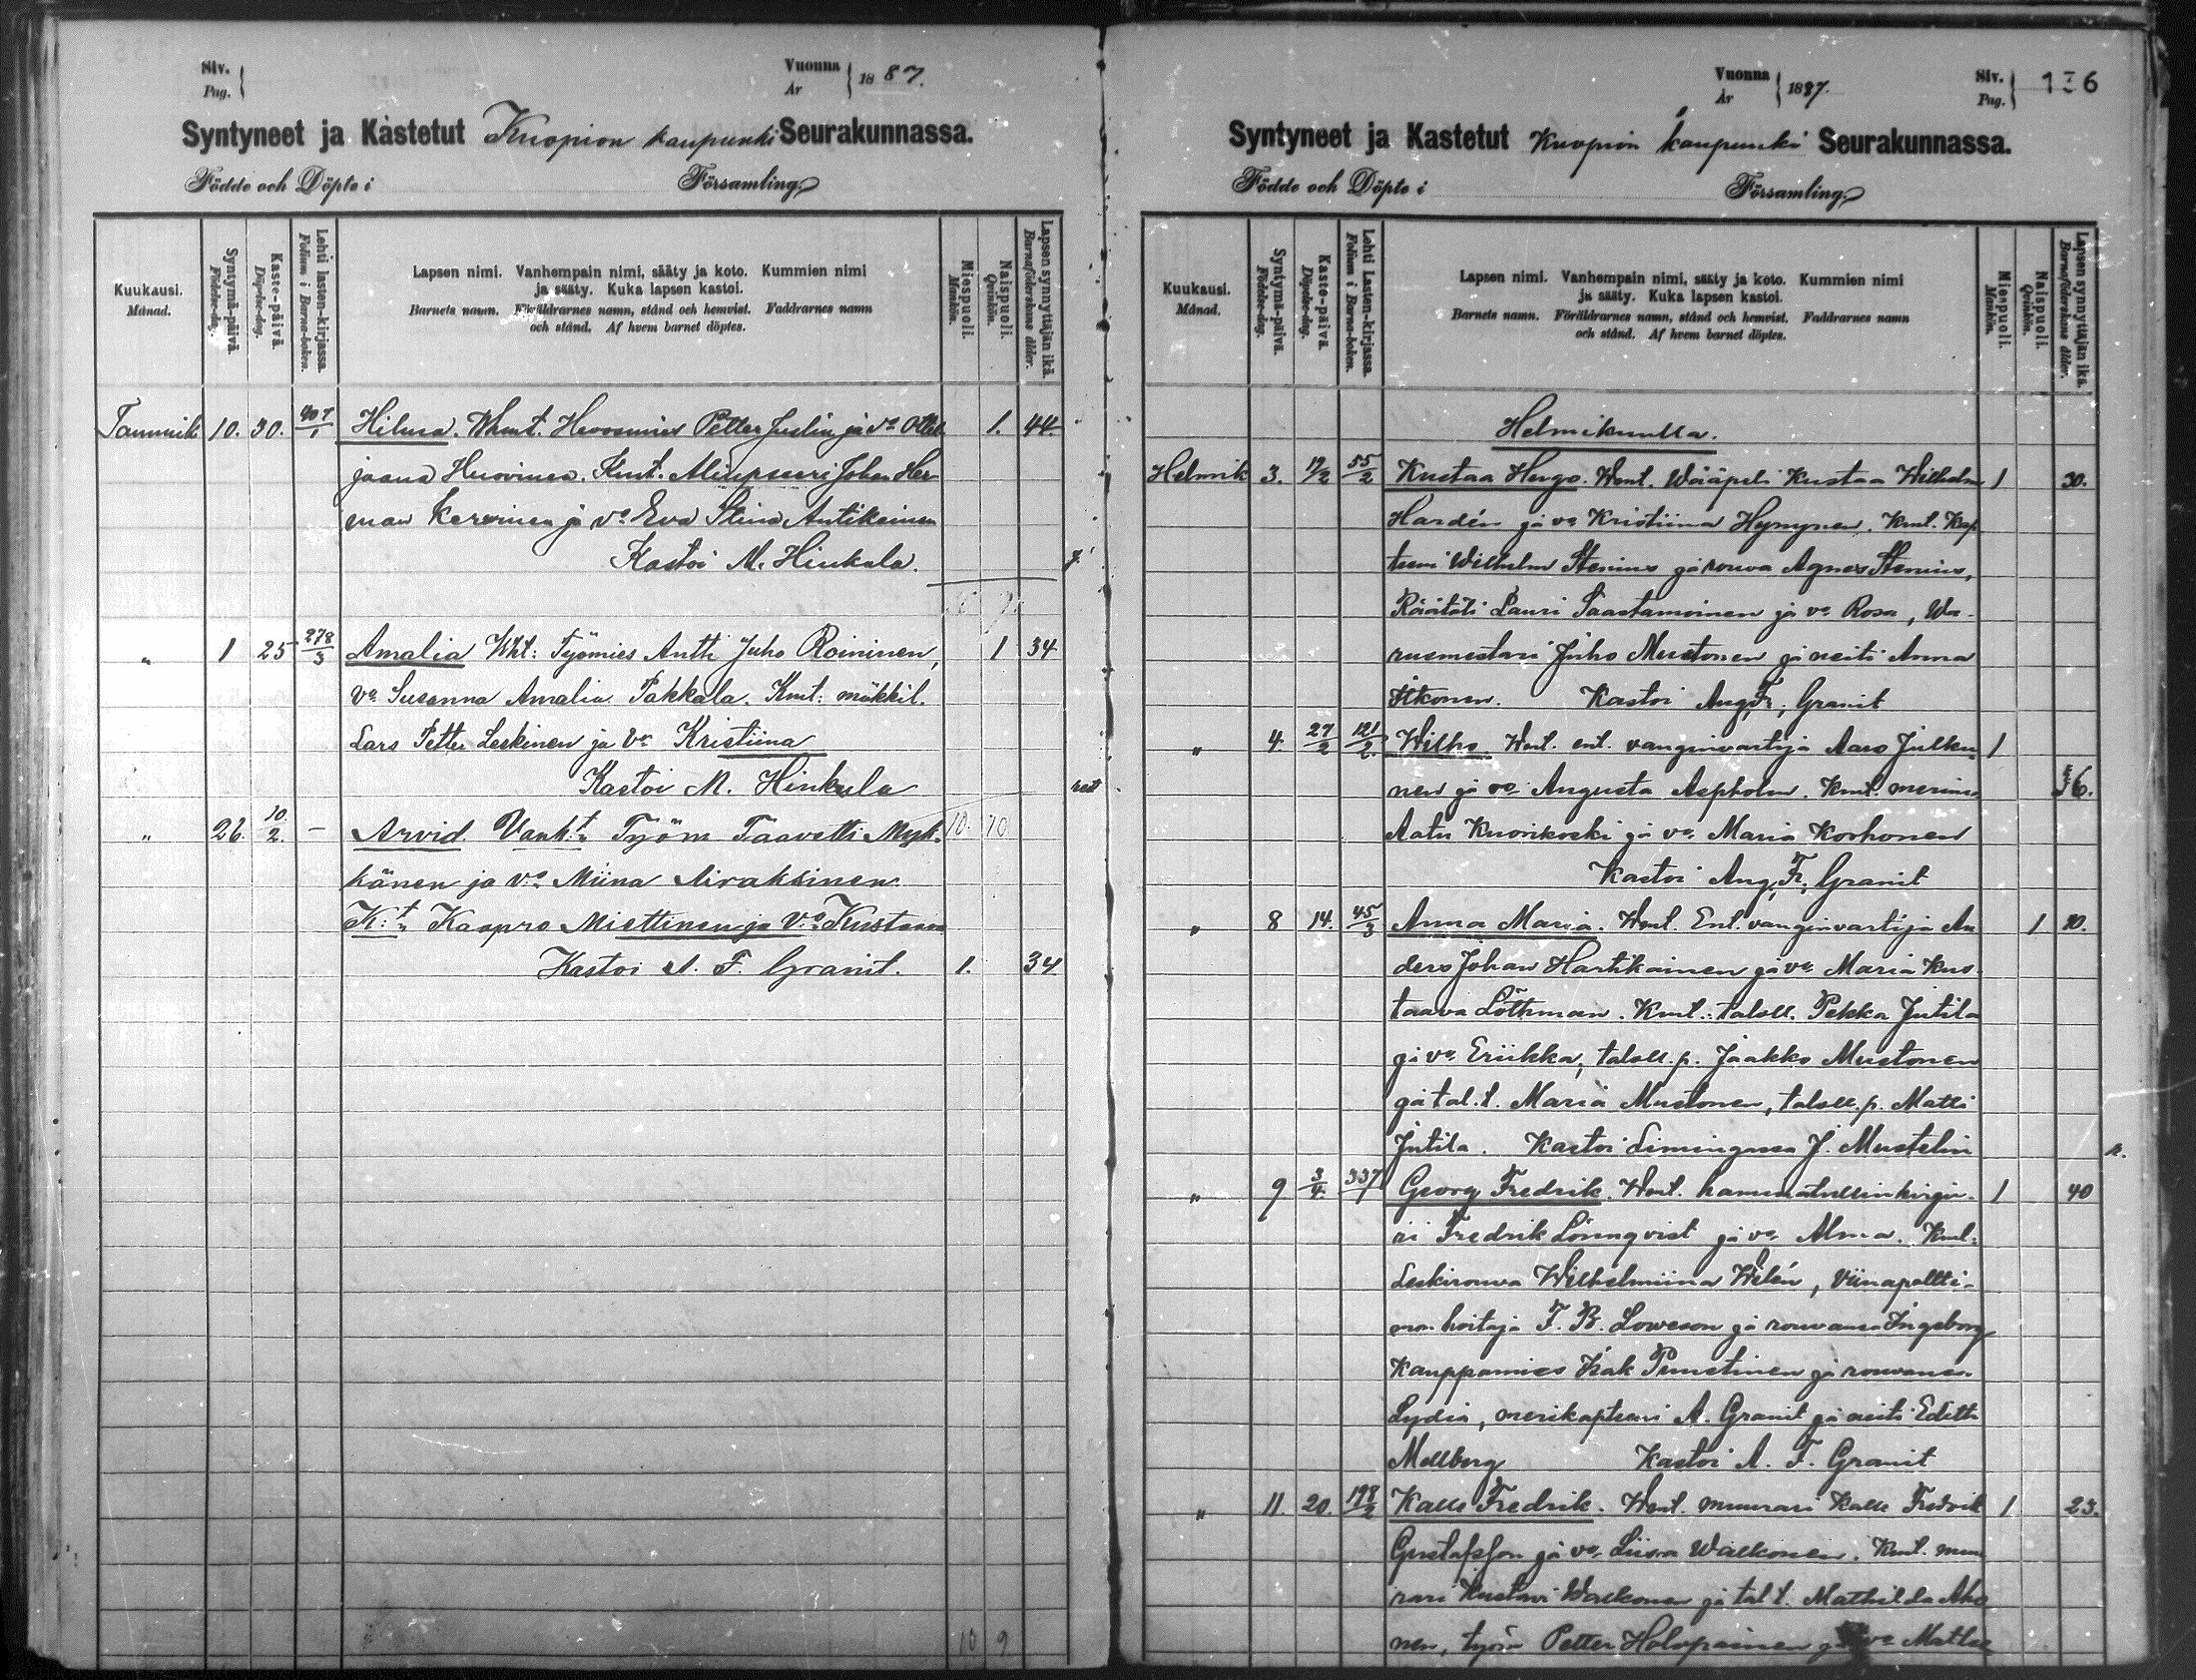 Siv. Pag.
Vuonna År 1887.
Syntyneet ja Kastetut Kuopion kaupunki Seurakunnassa.
Födde och Döpte i Församling.
Kuukausi. Månad.
Syntymä-päivä. Födelse-dag.
Kaste-päivä. Döpelse-dag.
Lehti lasten-kirjassa. Folium i Barna-boken.
Lapsen nimi. Vanhempain nimi, sääty ja koto. Kummien nimi
ja sääty. Kuka lapsen kastoi.
Barnets namn. Föräldrarnes namn, stånd och hemvist. Faddrarnes namn
och stånd. Af hvem barnet döptes.
Miespuoli. Mankön.
Naispuoli. Qvinkön.
Lapsen synnyttäjän ikä. Barnaföderskans ålder.
Tammik 10. 30. 407/1 Hilma. Whmt. Hevosmies Petter Juslin ja vo Otte 1. 44.
jaana Huovinen. Kmt. Aliupseeri Johan Her
man Kervinen ja vo Eva Stina Antikainen
Kastoi M. Hinkula.
" 1 25 278/3 Amalia Wht: Työmies Antti Juho Roininen, 1 34
vo Susanna Amalia Pakkala. Kmt: mökkil.
Lars Petter Leskinen ja Vo Kristiina
Kastoi M. Hinkula
" 26. 10/2. – Arvid. Vanht: Työm Taavetti Myk- 10. 10
känen ja vo Miina Airaksinen
K:t: Kaapro Miettinen ja Vo Kustaava
Kastoi A. F. Granit. 1. 34
10 9
Vuonna År 1887.
Siv. Pag. 136
Syntyneet ja Kastetut Kuopion kaupunki Seurakunnassa.
Födde och Döpte i Församling.
Kuukausi. Månad.
Syntymä-päivä. Födelse-dag.
Kaste-päivä. Döpelse-dag.
Lehti Lasten-kirjassa. Folium i Barna-boken.
Lapsen nimi. Vanhempain nimi, sääty ja koto. Kummien nimi
ja sääty. Kuka lapsen kastoi.
Barnets namn. Föräldrarnes namn, stånd och hemvist. Faddrarnes namn
och stånd. Af hvem barnet döptes.
Miespuoli. Mankön.
Naispuoli. Qvinkön.
Lapsen synnyttäjän ikä. Barnaföderskans ålder.
Helmikuulla.
Helmik 3. 19/2 55/2 Kustaa Hugo. Wmt. Wääpeli Kustaa Wilhelm 1 30.
Hardén ja vo Kristiina Hynynen. Kmt. Kap
teeni Wilhelm Stenius ja rouva Agnes Stenius,
Räätäli Lauri Saastamoinen ja vo Rosa, Wa-
rusmestari Juho Mustonen ja neiti Anna
Itkonen. Kastoi Aug. Fr. Granit
" 4. 27/2 121/2. Wilho. Wmt. ent. vanginvartija Aaro Julku- 1
nen ja vo Augusta Aspholm. Kmt. merim. 36.
Aatu Kuorikoski ja vo Maria Korhonen
Kastoi Aug. Fr. Granit
" 8 14. 45/3 Anna Maria. Wmt. Ent. vanginvartija An 1 30.
ders Johan Hartikainen ja vo Maria Kus-
taava Löthman. Kmt.: taloll. Pekka Jutila
ja vo Eriikka, taloll. p. Jaakko Mustonen
ja tal. t. Maria Mustonen, taloll. p. Matti
Jutila. Kastoi Limingassa J. Mustelin
" 9 3/4. 337/1 Georg Fredrik. Wmt. kamaritullinkirju- 1 40
ri Fredrik Lönnqvist ja vo Alma. Kmt:
Leskirouva Wilhelmiina Wilén, Viinapoltti-
mon hoitaja F. B. Loweson ja rouvansa Ingeborg
Kauppamies Isak Punstinen ja rouvansa
Lydia, merikapteeni A. Granit ja neiti Edith
Mellberg Kastoi A. F. Granit
" 11. 20. 198/2 Kalle Fredrik. Wmt. muurari Kalle Fredrik 1 23.
Gustafsson ja vo Liisa Walkonen. Kmt. muu
rari Kustavi Walkonen ja tal t. Mathilda Aho
nen, työm Petter Holopainen ja vo